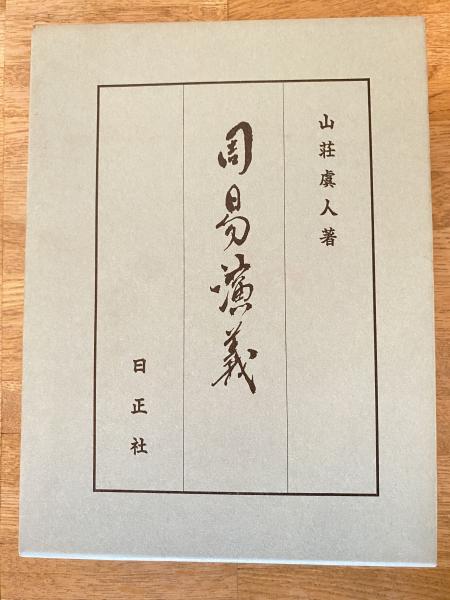 山荘虞人著
周易演義
日正社